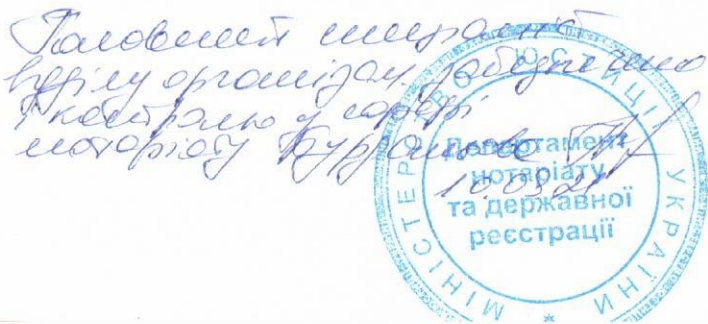 Головний спеціаліст
відділу організац. забезпечено
і контролю у сфері
нотаріату
10.03.21
МІНІСТЕРСТВО ЮСТИЦІЇ УКРАЇНИ *
Департамент
нотаріату
та державної
реєстрації